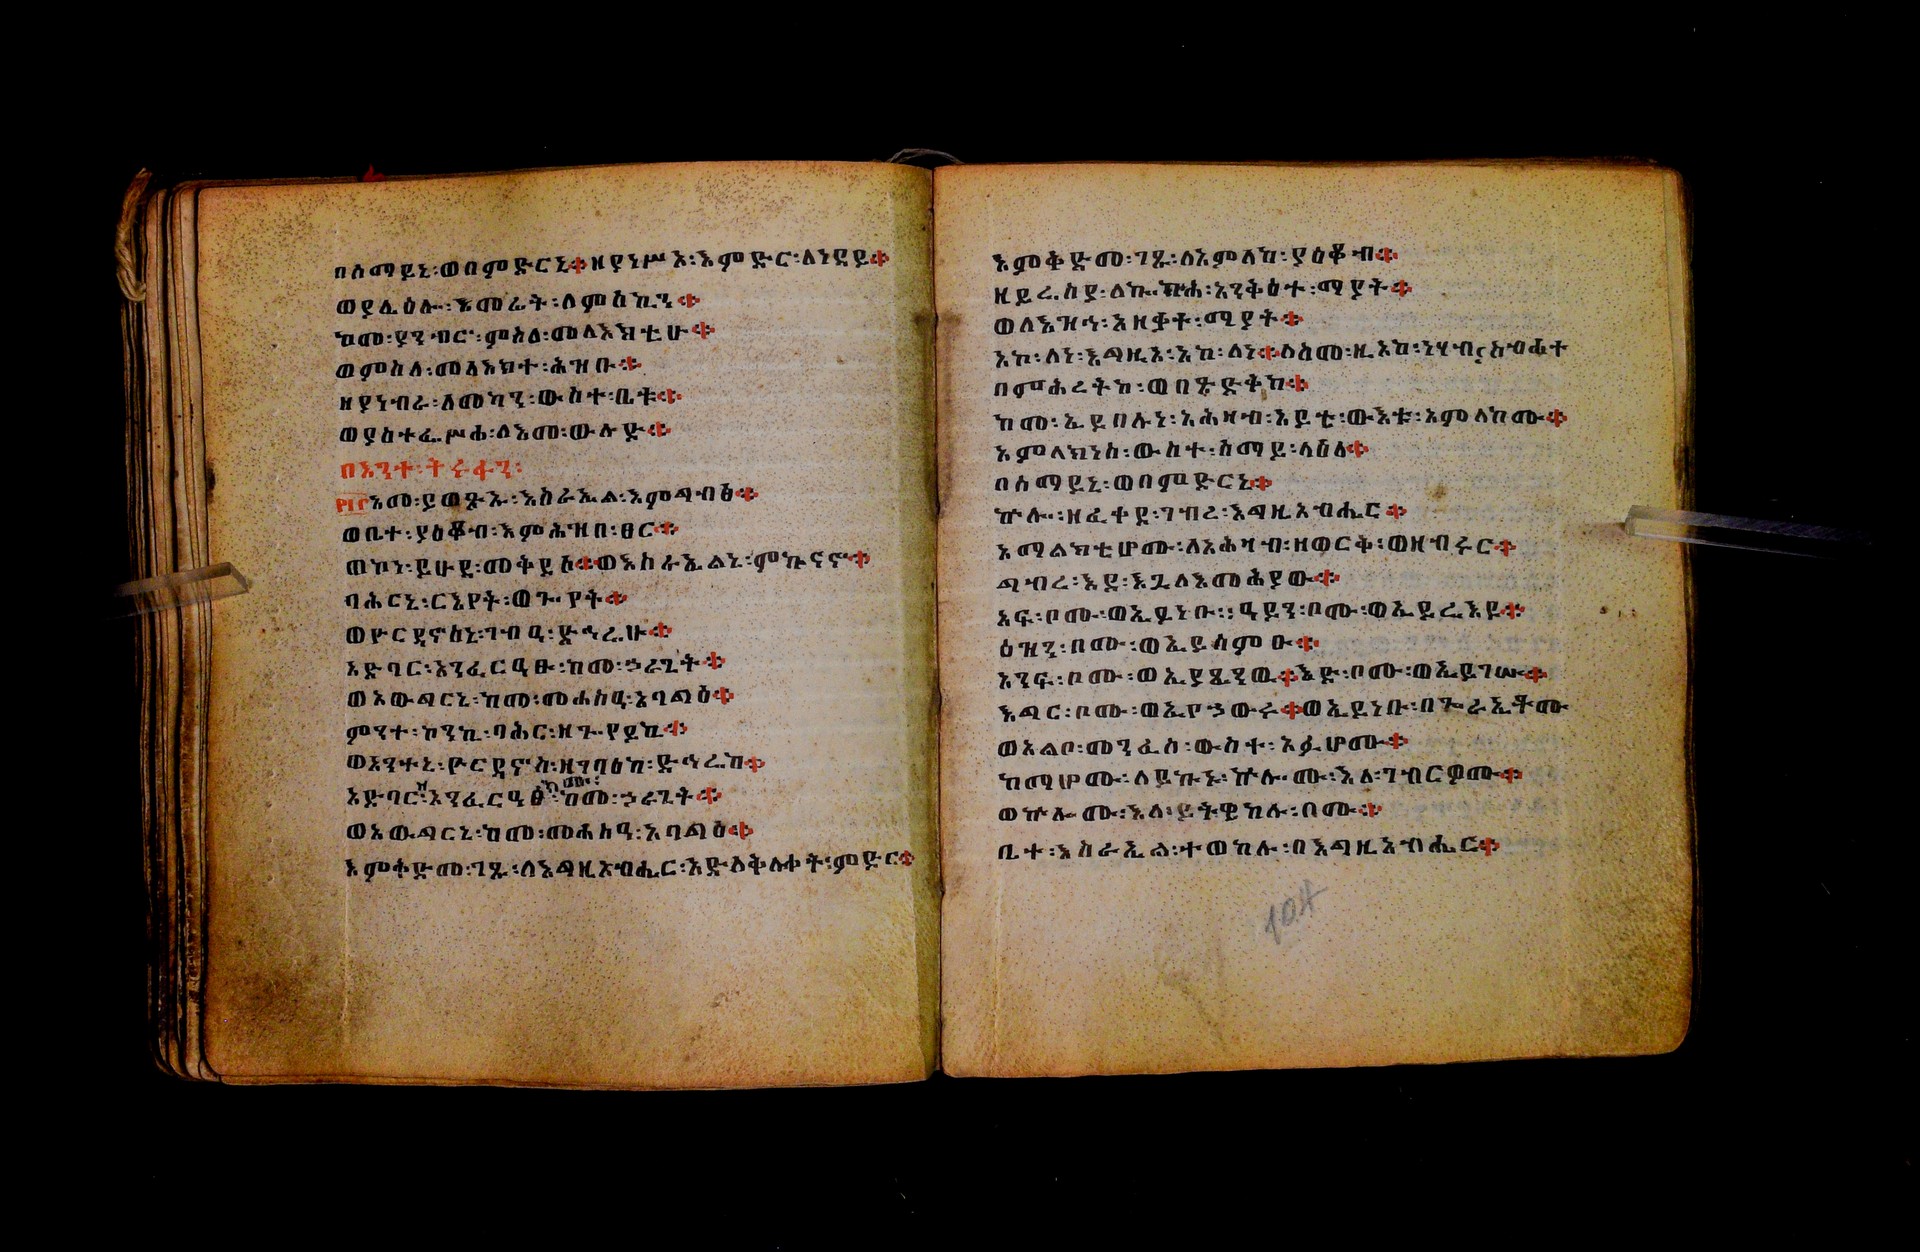 በሰማይኒ፡ወበምድርኒ፨ዘያነሥኦ፡እምድር፡ለነዳይ፨
ወያሌዕሎ፡እመሬት፡ለምስኪን፨
ከመ፡ያንብሮ፡ምስለ፡መላእክቲሁ፨
ወምስለ፡መላእክተ፡ሕዝቡ፨
ዘያነብራ፡ለመካን፡ውስተ፡ቤት፨
ወያስተፌሥሓ፡ለእመ፡ውሉድ፨
በእንተ፡ትሩፋን፡
፻፲፫እመ፡ይወፅኡ፡እስራኤል፡እምግብፅ፨
ወቤተ፡ያዕቆብ፡እምሕዝበ፡ፀር፨
ወኮነ፡ይሁዳ፡መቅደሰ፨ወእስራኤልኒ፡ምኩናኖ፨
ባሕርኒ፡ርእየት፡ወጐየት፨
ወዮርዳኖስኒ፡ገብዓ፡ድኅሬሁ፨
አድባር፡አንፈርዓፁ፡ከመ፡ኃራጊት፨
ወአውግርኒ፡ከመ፡መሐስዓ፡አባግዕ፨
ምንተ፡ኮንኪ፡ባሕር፡ዘጐየይኪ፨
ወአንተኒ፡ዮርዳኖስ፡ዘገባዕከ፡ድኅሬከ፨
አድባር፡ዘአንፈርዓፅክሙ፡ከመ፡ኃራጊት፨
ወአውግርኒ፡ከመ፡መሐስዓ፡አባግዕ፨
እምቅድመ፡ገጹ፡ለእግዚአብሔር፡አድለቅለቀት፡ምድር፨
እምቅድመ፡ገጹ፡ለአምላከ፡ያዕቆብ፨
ዘይሬስያ፡ለኰኵሐ፡አንቅዕተ፡ማያት፨
ወለእዝኅ፡አዘቅተ፡ማያት፨
አኮ፡ለነ፡እግዚኦ፡አኮ፡ለነ፨ለስመ፡ዚአከ፡ነሃብ፡ስብሐተ
በምሕረትከ፡ወበጽድቅከ፨
ከመ፡ኢይበሉነ፡አሕዛብ፡አይቴ፡ውእቱ፡አምላከሙ፨
አምላክነሰ፡ውስተ፡ሰማይ፡ላዕለ፨
በሰማይኒ፡ወበምድርኒ፨
ኵሎ፡ዘፈቀደ፡ገብረ፡እግዚአብሔር፨
አማልክቲሆሙ፡ለአሕዛብ፡ዘወርቅ፡ወዘብሩር፨
ግብረ፡እደ፡እጓለእመሕያው፨
አፍ፡ቦሙ፡ወኢይነቡ፡፡ዓይን፡ቦሙ፡ወኢይሬእዩ፨
ዕዝን፡በሙ፡ወኢይሰምዑ፨
አንፍ፡ቦሙ፡ወኢያጼንዉ፨እድ፡ቦሙ፡ወኢይገሡ፨
እግር፡ቦሙ፡ወኢየኃውሩ፨ወኢይነቡ፡በጐራኢቶሙ
ወአልቦ፡መንፈስ፡ውስተ፡አፉሆሙ፨
ከማሆሙ፡ለይኩኑ፡ኵሎሙ፡እለ፡ገብርዎሙ፨
ወኵሎሙ፡እለ፡ይትዌከሉ፡ቦሙ፨
ቤተ፡እስራኤል፡ተወከሉ፡በእግዚአብሔር፨
104